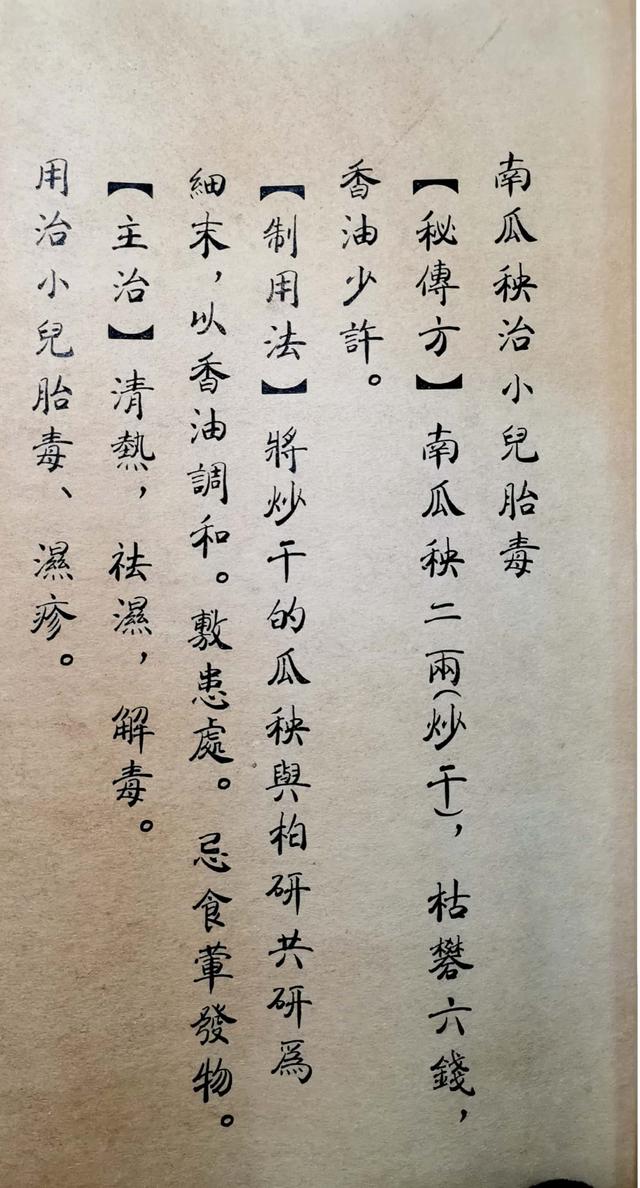 南瓜秧治小兒胎毒
【秘傳方】南瓜秧二兩(炒干),枯礬六錢,
香油少許。
【制用法】將炒干的瓜秧與柏研共研爲
細末,以香油調和。敷患處。忌食葷發物。
【主治】清熱,祛濕,解毒。
用治小兒胎毒、濕疹。